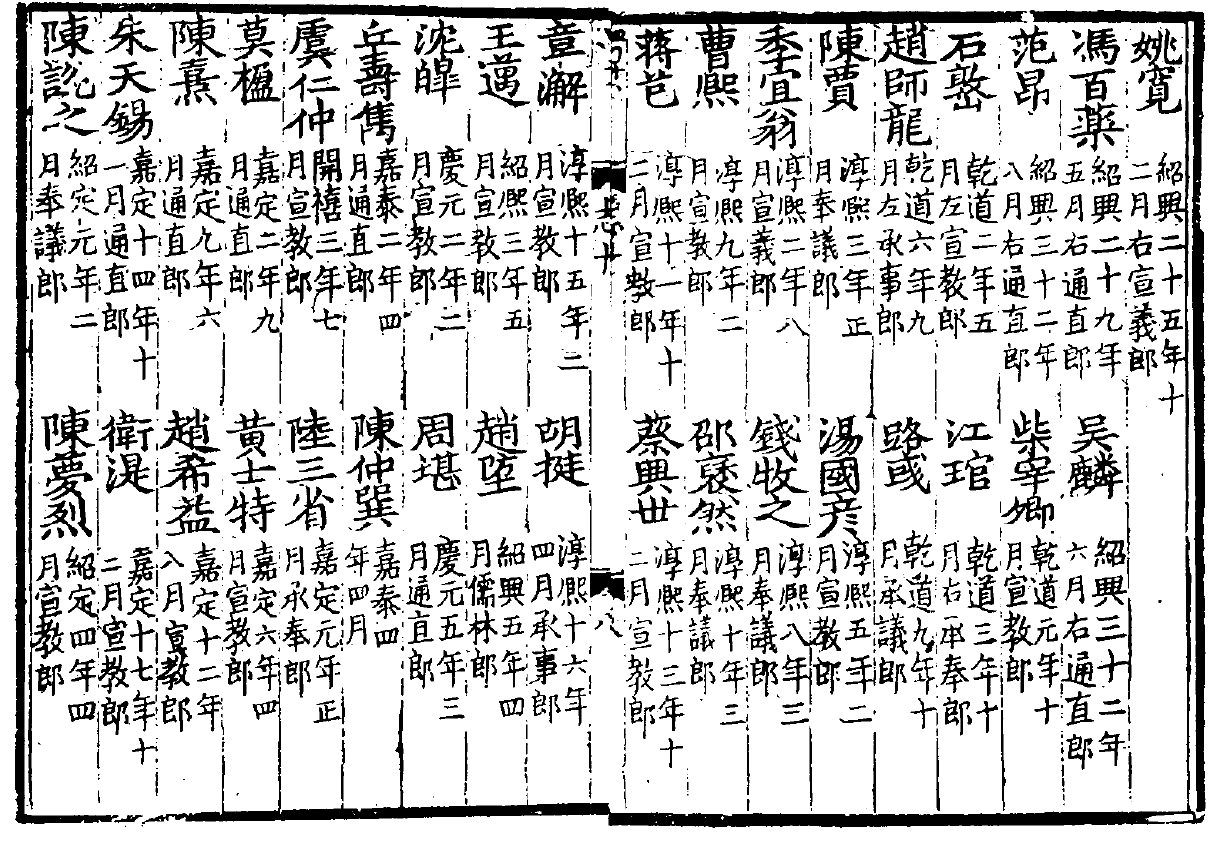 姚寛 紹興二十五年十二月右宣義郎
馮百藥 紹興二十九年五月右通直郎 吴麟 紹興三十二年六月右通直郎
范昂 紹興三十二年八月右通直郎 柴宰卿 乾道元年十月宣教郎
石 乾道二年五月左宣教郎 江琯 乾道三年十月右承奉郎
趙師龍 乾道六年九月左承事郎 路彧 乾道九年十月承議郎
陳賈 淳熈三年正月奉議郎 湯國彦 淳熈五年二月宣教郎
季宜翁 淳熈二年八月宣義郎 錢牧之 淳熈八年三月奉議郎
曹熈 淳熈九年二月宣教郎 邵褎然 淳熈十年三月奉議郎
蒋芑 淳熈十一年十二月宣教郎 蔡興世 淳熈十三年十二月宣教郎
八
章澥 淳熈十五年二月宣教郎 胡挺 淳熈十六年四月承事郎
王邁 紹熈三年五月宣教郎 趙坖 紹興五年四月儒林郎
沈皥 慶元二年二月宣教郎 周堪 慶元五年三月通直郎
丘壽雋 嘉泰二年四月通直郎 陳仲巽 嘉泰四年四月
虞仁仲 開禧三年七月宣教郎 陸三省 嘉定元年正月承奉郎
莫楹 嘉定二年九月通直郎 黄士特 嘉定六年四月宣教郎
陳熹 嘉定九年六月通直郎 趙希益 嘉定十二年八月宣教郎
朱天錫 嘉定十四年十一月通直郎 衛湜 嘉定十七年十二月宣教郎
陳訦之 紹定元年二月奉議郎 陳夢烈 紹定四年四月宣教郎